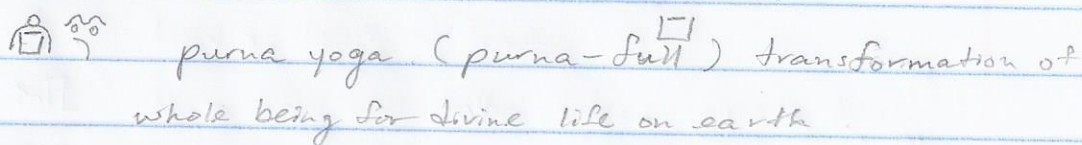 purna yoga (purna-full) transformation of
whole being for divine life on earth